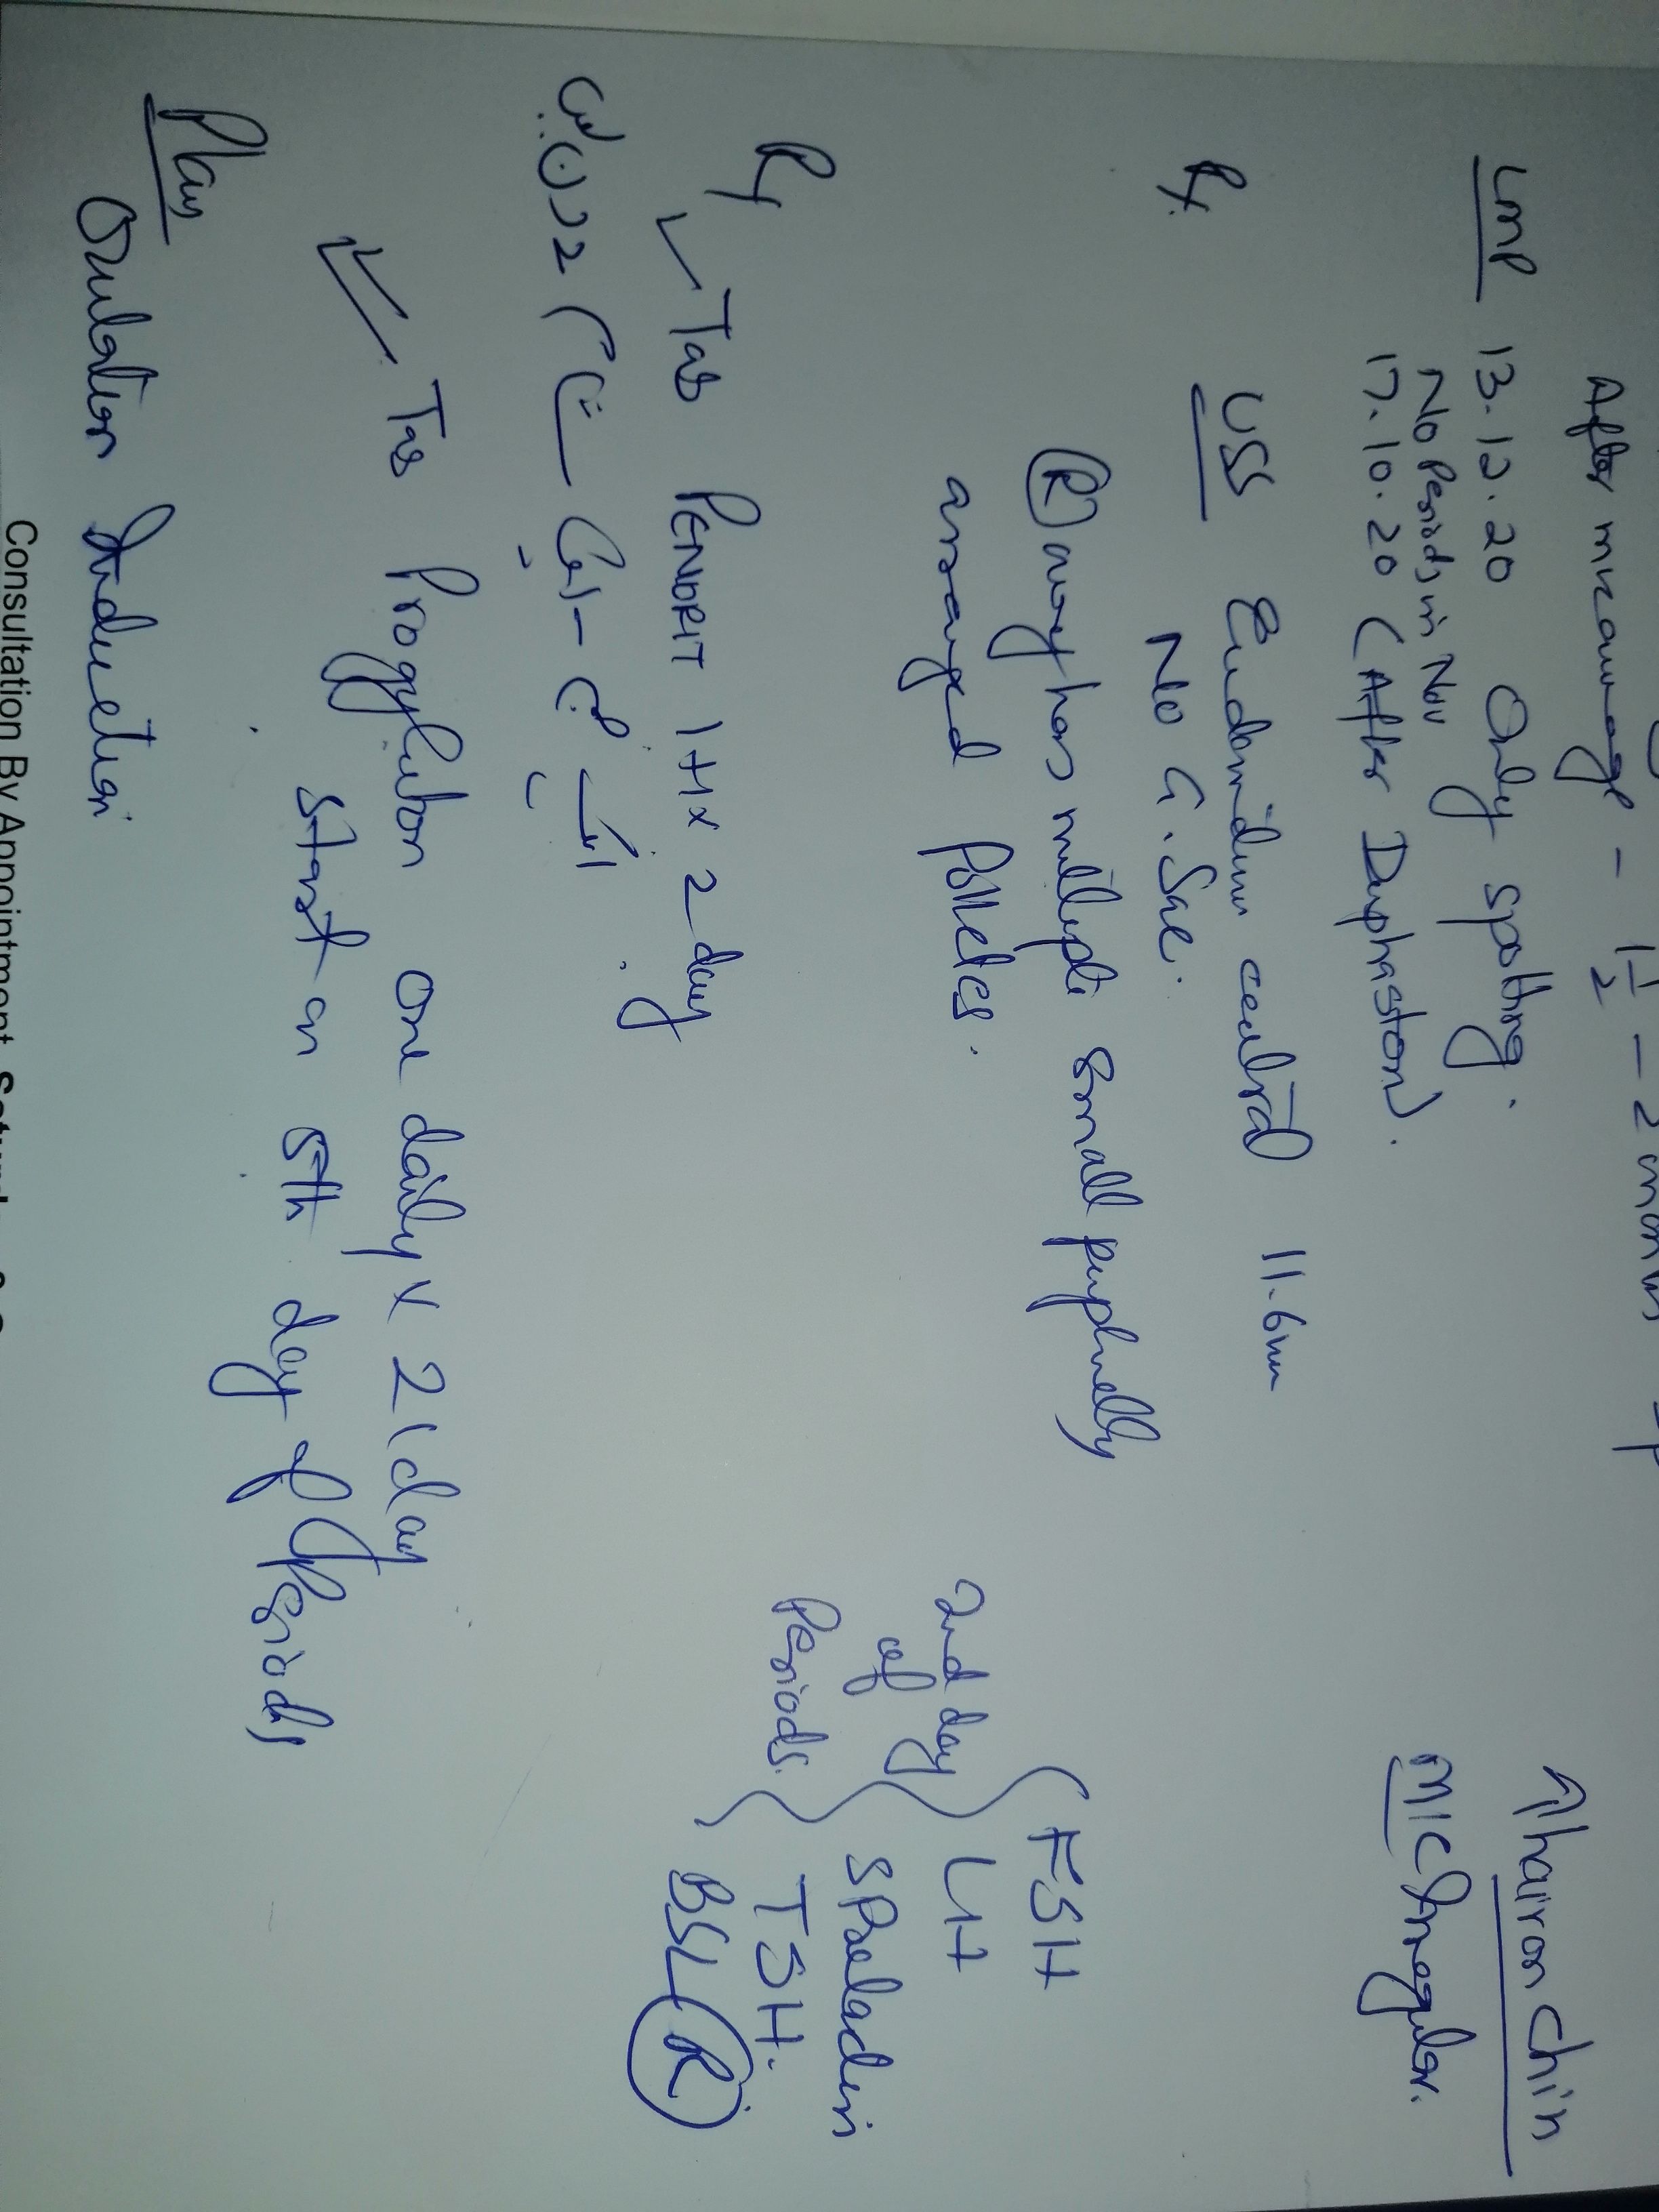 After miscarriage - 1 1/2 - 2 months
↑ hair on chin
LMP 13.12.20 Only spotting.
No Periods in Nov
17.10.20 (After Duphaston).
M/C Irregular.
USS Endomidium central 11.6mm
No G. Sac.
(R) ovary has multiple small peripherally
arranged follicles.
2nd day
of
Periods.
FSH
LH
S Prolactin
TSH.
BSL (R)
Rx
Tab PENDRIT 1+1 x 2 day
Tab Progyluton one daily x 21 day
start on 5th day of Periods
Plan
Ovulation Induction
Consultation By Appointment